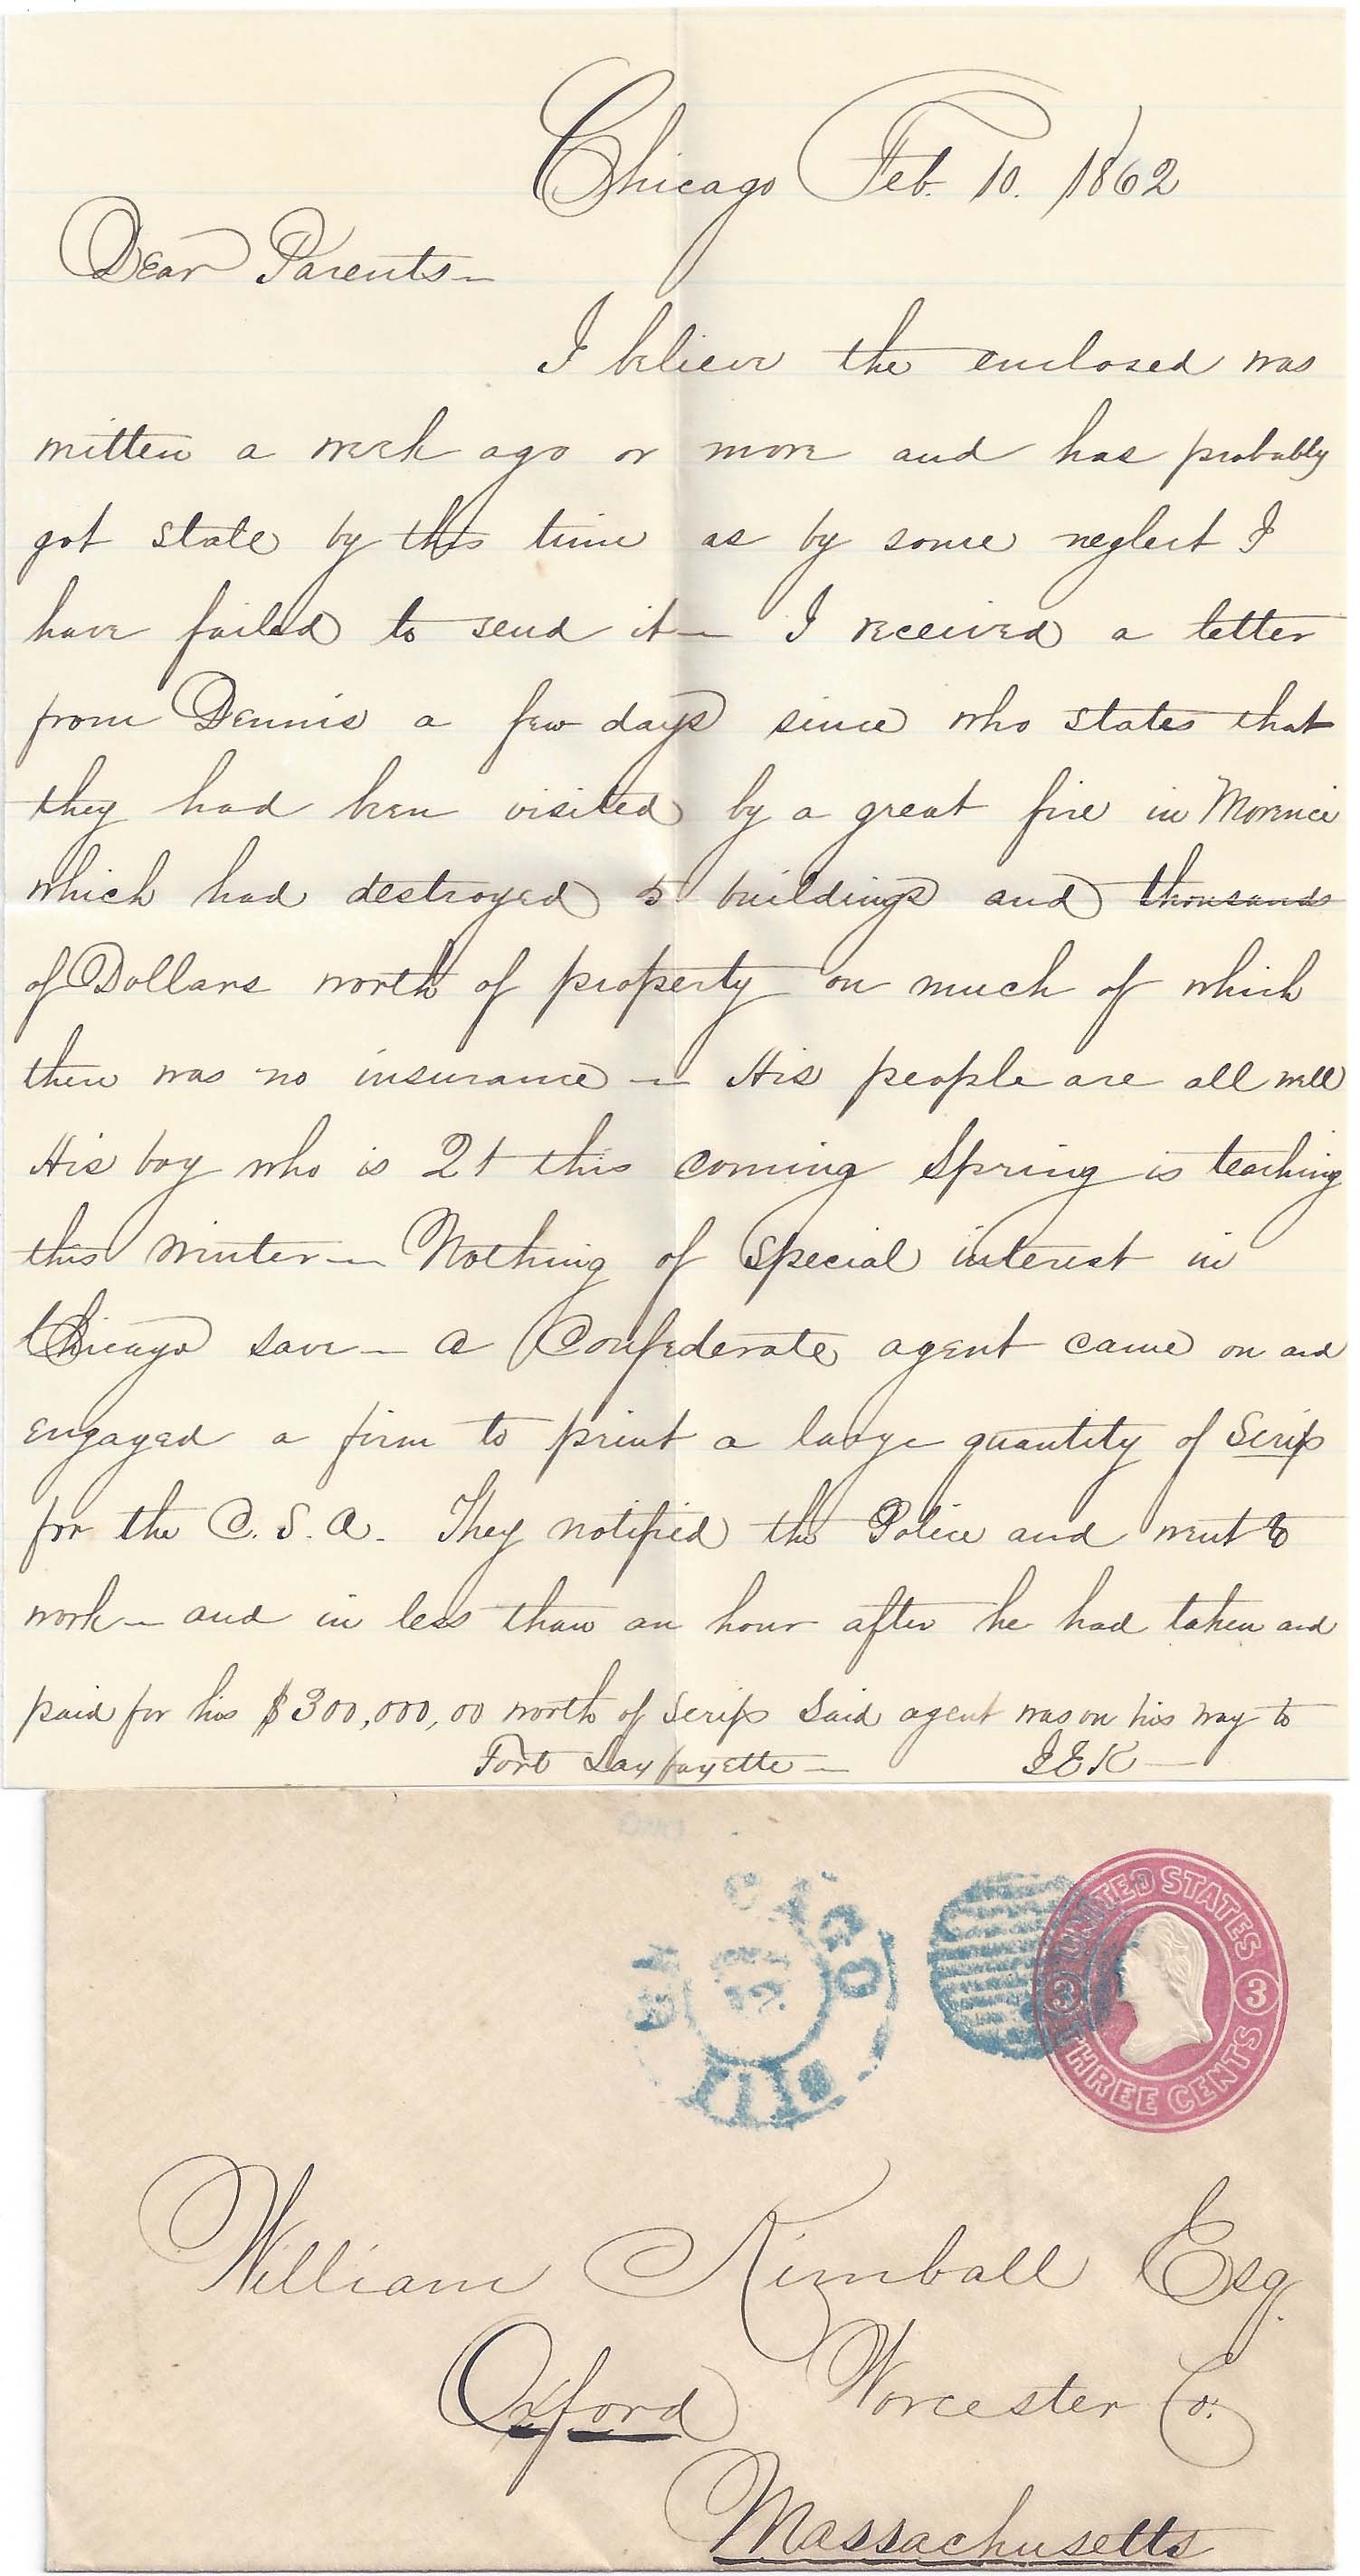 Chicago Feb. 10. 1862
Dear Parents—
I believe the enclosed was
written a week ago or more and has probably
got stale by this time as by some neglect I
have failed to send it— I received a letter
from Dennis a few days since who states that
they had been visited by a great fire in Morenci
which had destroyed 5 buildings and thousands
of Dollars worth of property on much of which
there was no insurance— His people are all well
His boy who is 21 this coming Spring is teaching
this winter— Nothing of special interest in
Chicago save— a Confederate agent came on and
engaged a firm to print a large quantity of Scrip
for the C. S. A. They notified the Police and went to
work— and in less than an hour after he had taken and
paid for his $300,000,00 worth of Scrip said agent was on his way to
Fort Layfayette— J E K—
CHICAGO
UNITED STATES
3 3
THREE CENTS
William Kimball Esq.
Oxford Worcester Co.
Massachusetts